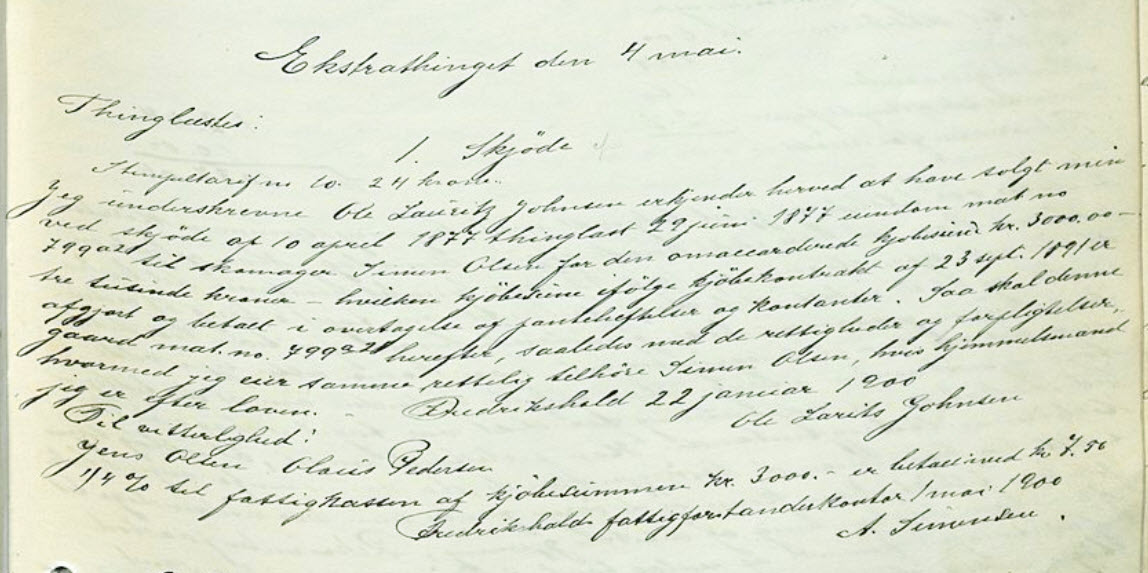 Ekstrathinget den 4 mai.
Thinglæstes:
1. Skjöde
Stempeltarif no 10. 24 kroner.
Jeg underskrevne Ole Lauritz Johnsen erkjender herved at have solgt min
ved skjöde af 10 april 1877 thinglæst 29 juni 1877 eiendom mat no
799a21 til skomager Simen Olsen for den omaccorderede kjöbesum kr. 3000.00 —
tre tusinde kroner — hvilken kjöbesum ifölge kjöbekontrakt af 23 sept. 1891 er
afgjort og betalt i overtagelse af panteheftelser og kontanter. Saa skal denne
gaard mat. no. 799a21 herefter, saaledes med de rettigheder og forpligtelser,
hvormed jeg eier samme rettelig tilhöre Simen Olsen, hvis hjemmelsmand
jeg er efter loven. - Fredrikshald 22 januar 1900
Ole Larits Johnsen
Til vitterlighed:
Jens Olsen Olaus Pedersen
1/4 % til fattigkassen af kjöbesummen kr. 3000.- er betalt med kr. 7.50
Fredrikshalds fattigforstanderkontor 1 mai 1900
A. Simensen.